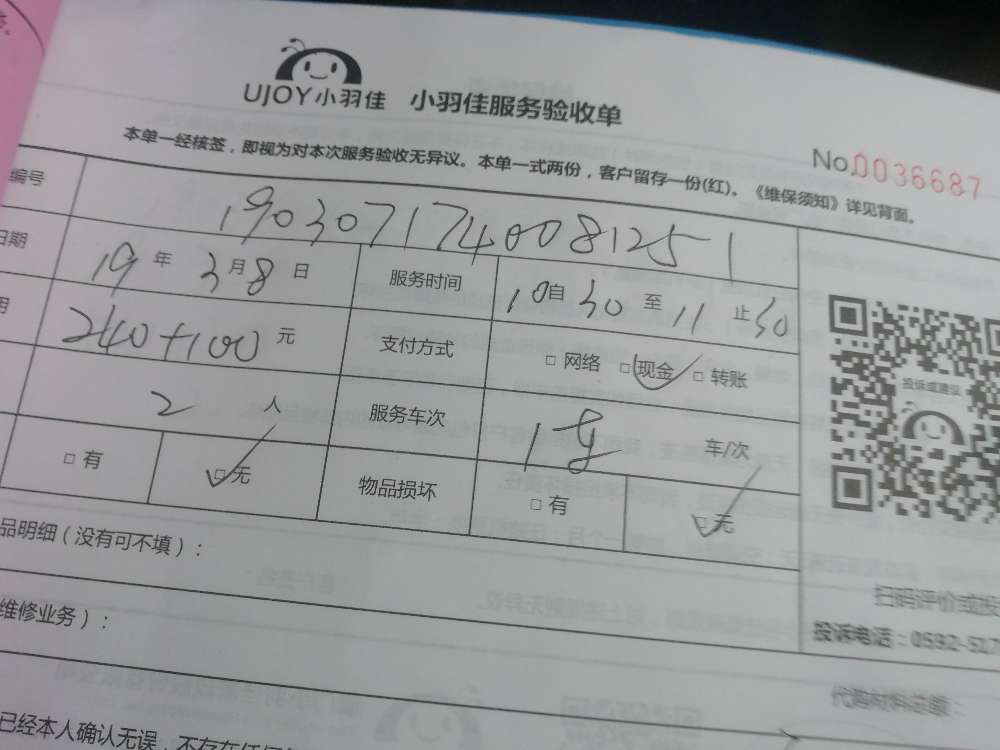 UJOY小羽佳 小羽佳服务验收单
本单一经核签，即视为对本次服务验收无异议。本单一式两份，客户留存一份(红)。《维保须知》详见背面。
No.0036687
编号 190307174008125 1
日期 19 年 3 月 8 日 服务时间 10 自 30 至 11 止 30
用 240+100 元 支付方式 □ 网络 □ 现金 □ 转账
2 人 服务车次 1车 车/次
□ 有 □ 无 物品损坏 □ 有 □ 无
投诉或建议
品明细（没有可不填）：
扫码评价或投
维修业务）：
投诉电话：0592-517
代购材料总额：
已经本人确认无误，不存在任何